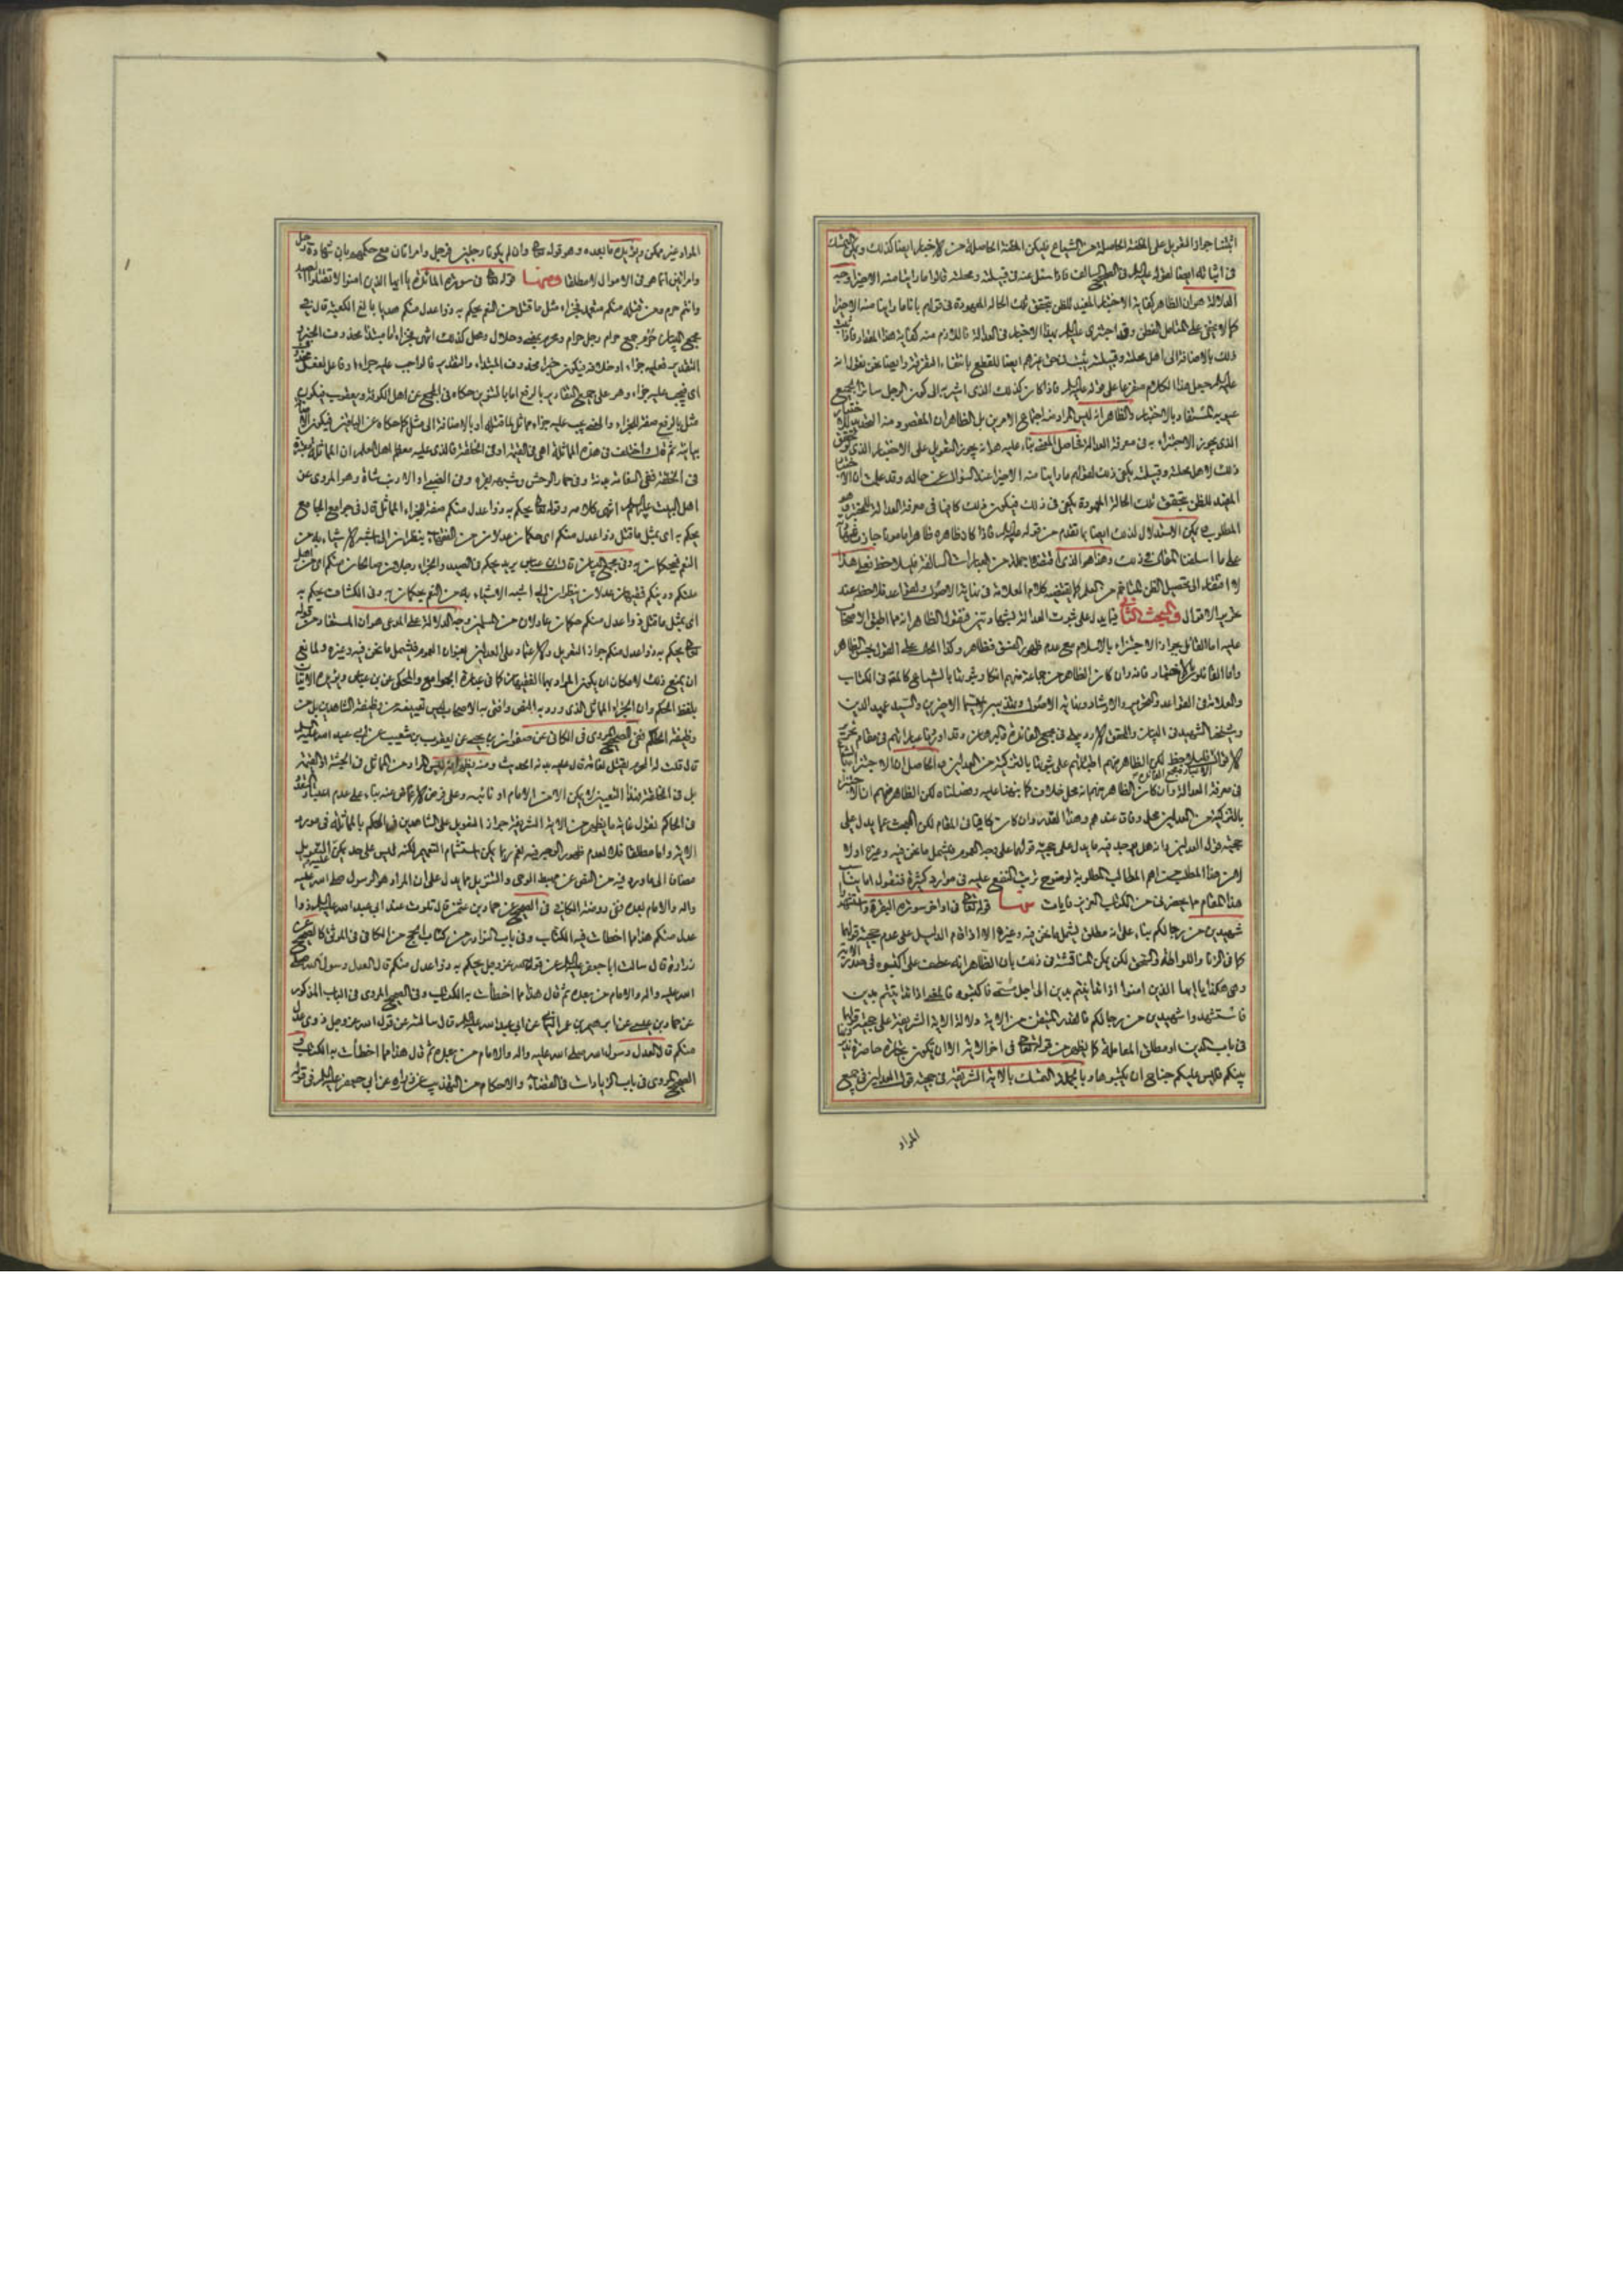 اثبتنا جواز التعويل على الظنة الحاصلة من الشياع فليكن الظنة الحاصلة من الاختبار ايضا كذلك ويمكن التمسك
في اثباته ايضا لقوله عليه السلام في الصحيح السالف فاذا سئل عنه في قبيلته ومحلته قالوا ما راينا منه الا خيرا وجه
الدلالة هو ان الظاهر كفاية الاختبار المفيد للظن بتحقق تلك الحالة المعهودة في قولهم باناما راينا منه الا خيرا
كما لا يخفى على المتامل الفطن
ذلك بالاضافة الى اهل محلته وقبيلته
عليه السلام جعل هذا الكلام متفرعا على قوله عليه السلام فاذا كان كذلك الذي اشير به الى كون الرجل ساترا لجميع
عيوبه المستفاد بالاختبار والظاهر انه ليس المراد منه اجتماع الامرين بل الظاهر ان المقصود منه
الذي يجوز الاجتزاء به في معرفة العدالة فحاصل المعنى بناء عليه هو انه يجوز التعويل على الاختبار الذي
ذلك لاهل محلته وقبيلته يكفي ذلك لقولهم ما راينا منه الا خيرا عند السؤال عن حاله وقد علمت ان الا
المفيد للظن بتحقق تلك الحالة المعهودة يكفي في ذلك فيكون ذلك كافيا في معرفة العدالة
المطلوب ويمكن الاستدلال لذلك ايضا بما تقدم من قوله عليه السلام فاذا كان ظاهره ظاهرا مامونا جازت شهادته
على ما اسلفنا الكلام في ذلك وهذا هو الذي اقتضاه جملة من العبارات السالفة فليلاحظ فعلى هذا
لا افتقار الى تحصيل الظن المتاخم من العلم كما يقتضيه كلام العلامة في نهاية الاصول
تحرير الاقوال والمبحث الثاني فيما يدل على ثبوت العدالة بشهادتين فنقول الظاهر انه مما اطبق الاصحاب
عليه اما القائل بجواز الاجتزاء بالاسلام مع عدم ظهور الفسق فظاهر وكذا الحال على القول بحسن الظاهر
واما القائلون بالاختبار فانه وان كان الظاهر من جماعة منهم انكار ثبوتها بالشياع كالمحقق في الكتاب
والعلامة في القواعد والتحرير والارشاد ونهاية الاصول والسيد عميد الدين
وشيخنا الشهيد في البيان والمحقق الاردبيلي في مجمع الفائدة
لكن الظاهر منهم اطباقهم على ثبوتها بالتزكية من العدلين والحاصل ان الاجتزاء بالشياع
في معرفة العدالة وان كان الظاهر منهم انه محل خلاف كما نبهنا عليه وفصلناه لكن الظاهر منهم ان الاجتزاء
بالتزكية من العدلين محل وفاق عندهم وهذا القدر وان كان كافيا في المقام لكن المبحث عما يدل على
حجية قول العدلين وانه هل يوجد فيه ما يدل على حجية قولهما على وجه العموم فيشمل ما نحن فيه وغيره اولا
لا من هذا المطلب من اهم المطالب المطلوبة لوضوح ترتب النفع عليه في موارد كثيرة فنقول اما
هذا المقام ما يحضرني من الكتاب العزيز فايات منها قوله تعالى في اواخر سورة البقرة واستشهدوا
شهيدين من رجالكم بناء على انه مطلق يشمل ما نحن فيه وغيره الا اذا قام الدليل على عدم حجية قولهما
كما في الزنا واللواط والسحق لكن يمكن المناقشة في ذلك بان الظاهر انه عطف على اكتبوه في صدر الاية
وهي هكذا يا ايها الذين امنوا اذا تداينتم بدين الى اجل مسمى فاكتبوه فالمعنى اذا تداينتم بدين
فاستشهدوا شهيدين من رجالكم فالقدر المتيقن من الاية دلالة الاية الشريفة على حجية قولهما
في باب الدين او مطلق المعاملة كما يظهر من قوله تعالى في اخر الاية الا ان تكون تجارة حاضرة تديرونها
بينكم فليس عليكم جناح ان لا تكتبوها وبالجملة التمسك بالاية الشريفة في حجية قول العدلين في جميع
المراد
المراد غير ممكن ويؤيده ما بعده وهو قوله تعالى وان لم يكونا رجلين فرجل وامراتان مع حكمهم بان شهادة رجل
وامراتين انما هو في الاموال لا مطلقا ومنها قوله تعالى في سورة المائدة يا ايها الذين امنوا لا تقتلوا الصيد
وانتم حرم ومن قتله منكم متعمدا فجزاء مثل ما قتل من النعم يحكم به ذوا عدل منكم هديا بالغ الكعبة قال في
مجمع البيان حرم جمع حرام رجل حرام ومحرم بمعنى وحلال ومحل كذلك انتهى فجزاء اما مبتدا محذوف الخبر
التقدير فعليه جزاء او خلافه فيكون خبرا محذوف المبتداء والتقدير فالواجب عليه جزاء او فاعل لفعل
اي فيجب عليه جزاء وهو على جميع التقادير بالرفع اما بالتنوين حكاه في المجمع عن اهل الكوفة ويعقوب فيكون
مثل بالرفع صفة للجزاء والمعنى يجب عليه جزاء مماثل لما قتله او بالاضافة الى مثل كما حكاه عن الباقين فيكون
بيانية ثم قال واختلف في هذه المماثلة اهي في القيمة او في الخلقة فالذي عليه معظم اهل العلم ان المماثلة معتبرة
في الخلقة ففي النعامة بدنة وفي حمار الوحش وشبهه بقرة وفي الضبي والارنب شاة وهو المروي عن
اهل البيت عليهم السلام انتهى كلامه وقوله تعالى يحكم به ذوا عدل منكم صفة للجزاء المماثل قال في جوامع الجامع
يحكم به اي بمثل ما قتل ذوا عدل منكم اي حكمان عدلان من الفقهاء ينظران الى اشبه الاشياء به من
النعم فيحكمان به وفي مجمع البيان قال ابن عباس يريد يحكم في الصيد والجزاء رجلان صالحان منكم اي من اهل
ملتكم ودينكم فقيهان عدلان ينظران الى اشبه الاشياء به من النعم فيحكمان به وفي الكشاف يحكم به
اي بمثل ما قتل ذوا عدل منكم حكمان عادلان من المسلمين وجه الدلالة على المدعى هو ان المستفاد من قوله
تعالى يحكم به ذوا عدل منكم جواز التعويل والاعتماد على العدلين بعنوان العموم فيشمل ما نحن فيه وغيره ولمانع
ان يمنع ذلك لامكان ان يكون المراد بهما الفقيهان كما في عبارة الجوامع والمحكي عن ابن عباس
بلفظ الحكم وان الجزاء المماثل الذي ورد به النص وافتى به الاصحاب ليس تعيينه من وظيفة الشاهدين بل من
وظيفة الحاكم ففي الصحيح المروي في الكافي عن صفوان بن يحيى عن يعقوب بن شعيب عن ابي عبد الله عليه السلام
قال قلت له المحرم يقتل نعامة قال عليه بدنة الحديث ومنه يظهر انه ليس المراد من المماثل في الجثة او القيمة
بل في الخلقة فهذا التعيين لا يمكن الا من الامام او نائبه وعلى فرض الاغماض عنه بناء على عدم اعتبار التعدد
في الحاكم نقول غاية ما يظهر من الاية الشريفة جواز التعويل على الشاهدين في الحكم بالمماثلة في مورد
الاية واما مطلقا فلا لعدم ظهور العموم فيه نعم ربما يمكن استشمام التعميم لكنه ليس على حد يمكن التعويل عليه
مضافا الى ما ورد فيه من النص عن مهبط الوحي والتنزيل مما يدل على ان المراد هو الرسول صلى الله عليه
واله والامام بعده ففي روضة الكافي في الصحيح عن حماد بن عثمن قال تلوت عند ابي عبد الله عليه السلام ذوا
عدل منكم هذا مما اخطات فيه الكتاب وفي باب النوادر من كتاب الحج من الكافي في الموثق كالصحيح عن
زرارة قال سالت ابا جعفر عليه السلام عن قول الله عز وجل يحكم به ذوا عدل منكم قال العدل رسول الله صلى
الله عليه واله والامام من بعده ثم قال هذا مما اخطأت به الكتاب وفي الصحيح المروي في الباب المذكور
عن حماد بن عيسى عن ابراهيم بن عمر اليماني عن ابي عبد الله عليه السلام قال سالته عن قول الله عز وجل ذوى عدل
منكم قال العدل رسول الله صلى الله عليه واله والامام من بعده ثم قال هذا مما اخطأت به الكتاب وفي
الصحيح المروي في باب الزيادات في القضاء والاحكام من التهذيب عن زرارة عن ابي جعفر عليه السلام في قوله